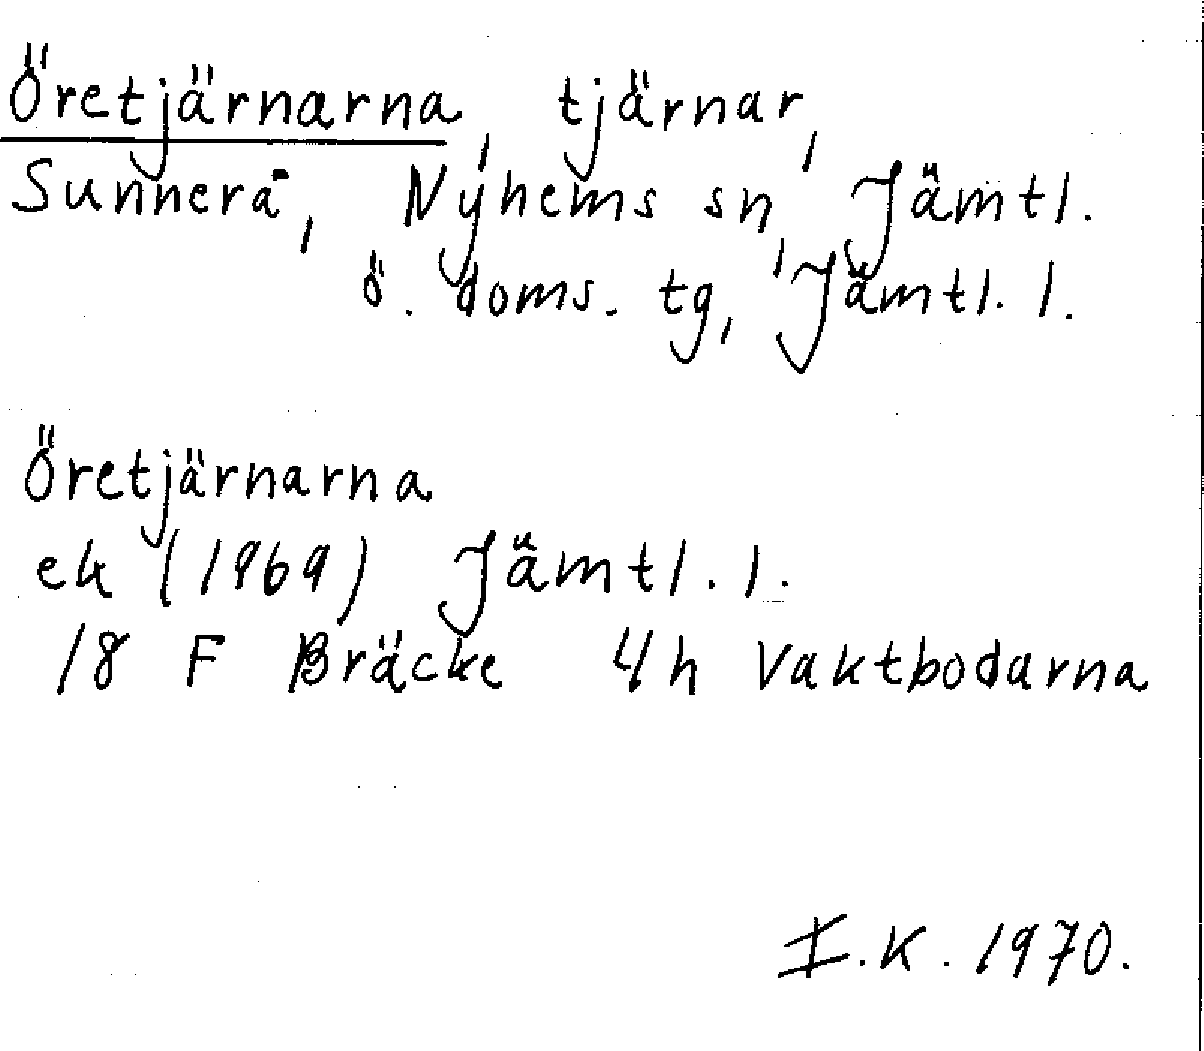 Öretjärnarna, tjärnar,
Sunnerå, Nyhems sn, Jämtl.
ö. doms. tg, Jämtl. l.
Öretjärnarna
ek (1969) Jämtl. l.
18 F Bräcke 4h Vaktbodarna
I.K. 1970.